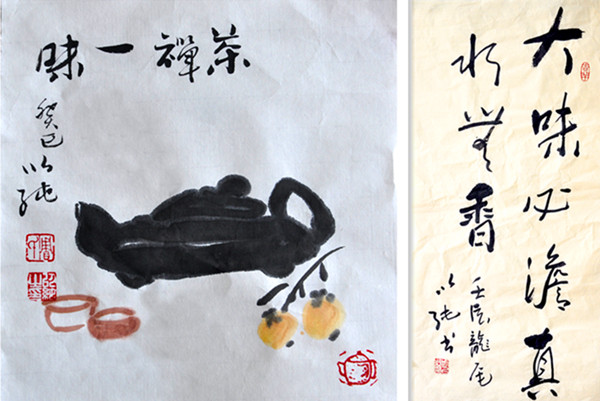 茶禪一味
癸巳
以纯
大味必澹真
水無香
壬辰龍尾
以纯书